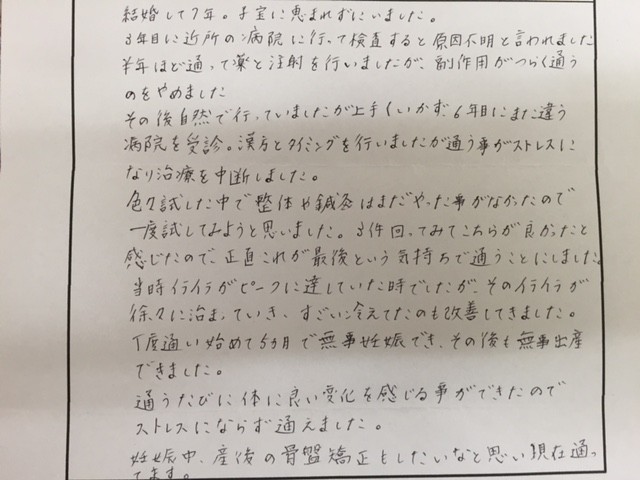 結婚して7年。子宝に恵まれずにいました。
3年目に近所の病院に行って検査すると原因不明と言われました
半年ほど通って薬と注射を行いましたが、副作用がつらく通う
のをやめました
その後自然で行っていましたが上手くいかず、6年目にまた違う
病院を受診。漢方とタイミングを行いましたが通う事がストレスに
なり治療を中断しました。
色々試した中で整体や鍼灸はまだやった事がなかったので
一度試してみようと思いました。3件回ってみてこちらが良かったと
感じたので、正直これが最後という気持ちで通うことにしました。
当時イライラがピークに達していた時でしたが、そのイライラが
徐々に治まっていき、すごい冷えてたのも改善してきました。
丁度通い始めて5ヵ月で無事妊娠でき、その後も無事出産
できました。
通うたびに体に良い変化を感じる事ができたので
ストレスにならず通えました。
妊娠中、産後の骨盤矯正もしたいなと思い現在通っ
てます。